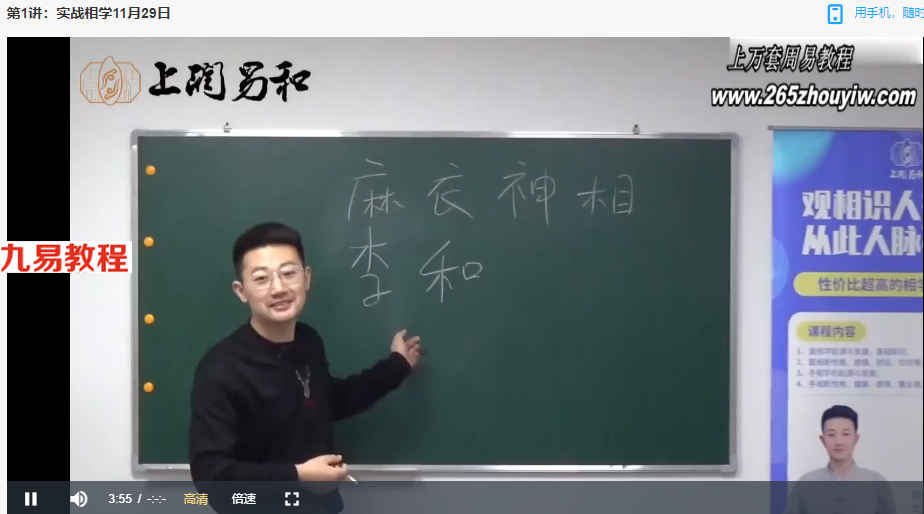 第1讲：实战相学11月29日
用手机，随时
上润易和
上万套周易教程
www.265zhouyiw.com
麻衣神相
李和
九易教程
上润易和
观相识人
从此人脉
性价比超高的相学
课程内容
3:55 / -:-:-
高清
倍速